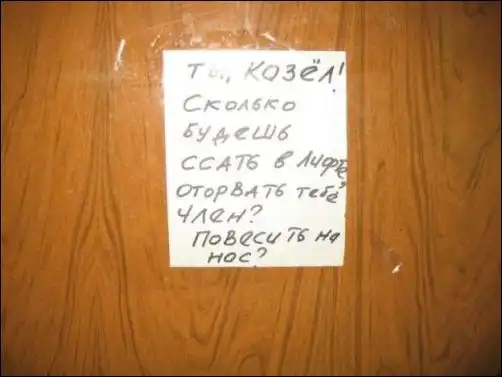 Ты, козёл!
Сколько
будешь
ссать в лифте?
Оторвать тебе
член?
Повесить на
нос?